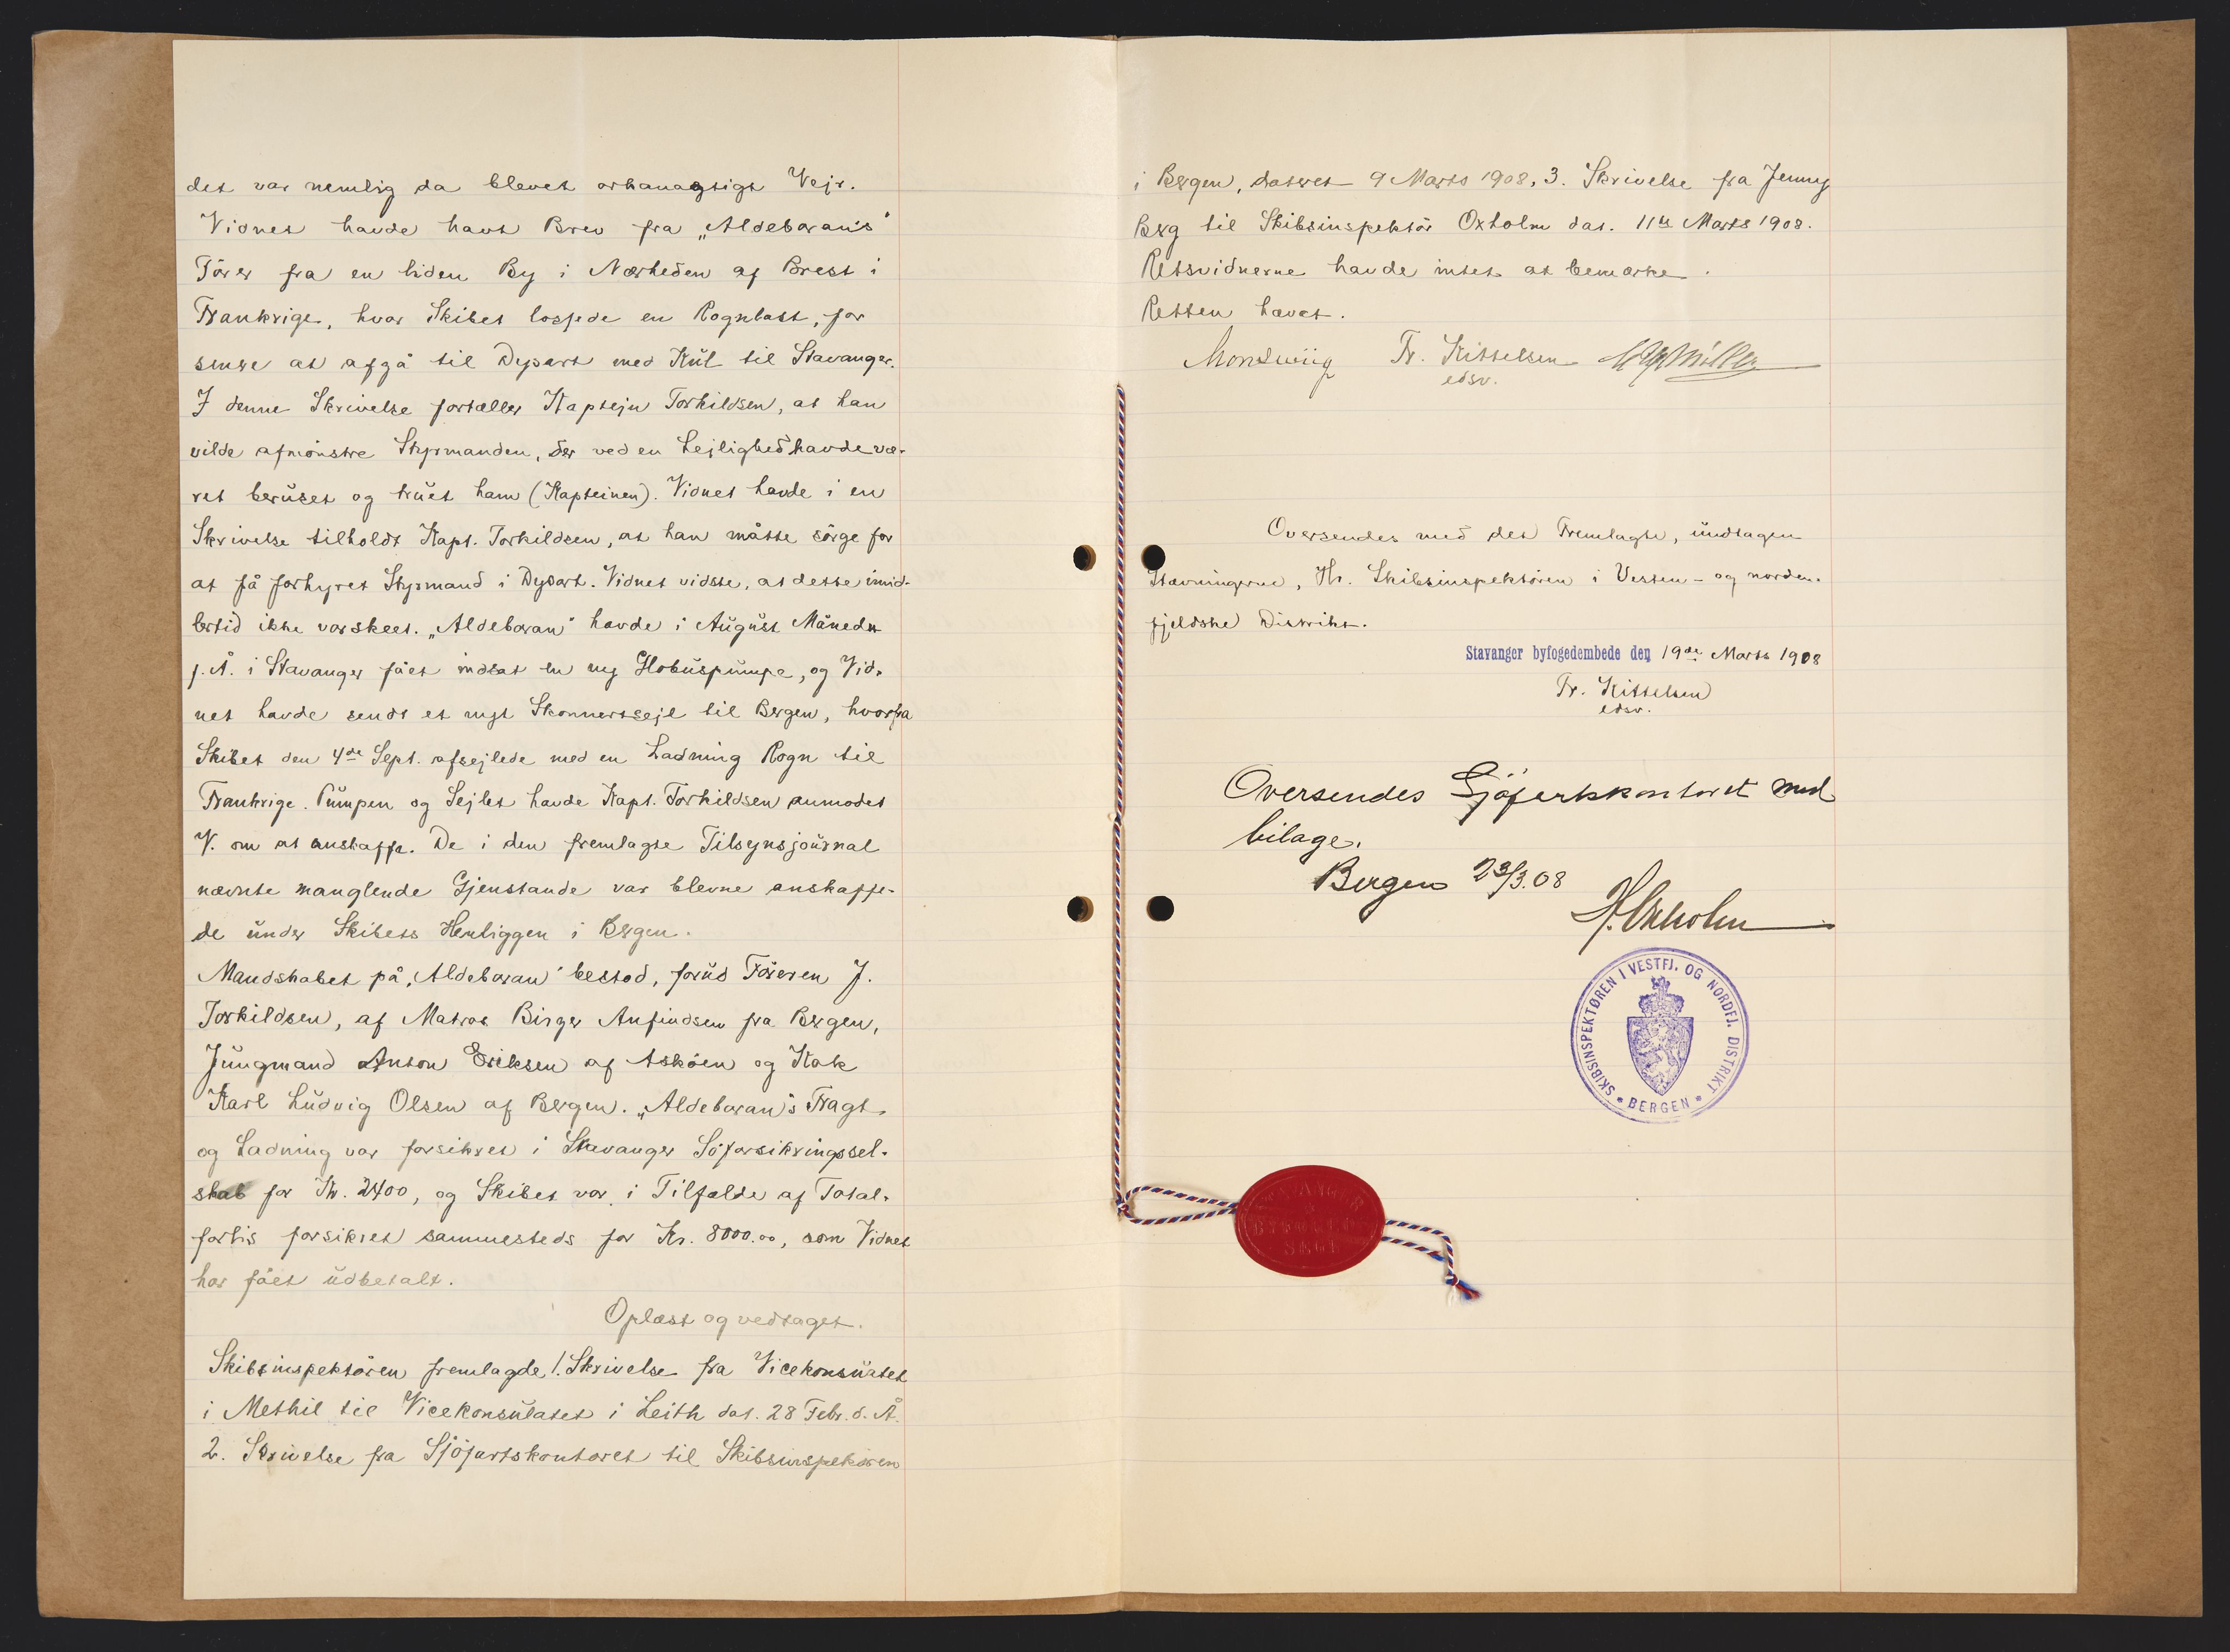 det var nemlig da blevet orkanagtigt Vejr.
Vidnet havde havt Brev fra „Aldebaran's"
Förer fra en liden By i Nærheden af Brest i
Frankrige, hvor Skibet lossede en Rognlast, for
senere at afgå til Dysart med Kul til Stavanger.
I denne Skrivelse fortæller Kaptejn Torkildsen, at han
vilde afmönstre Styrmanden, der ved en Lejlighed havde væ-
ret beruset og truet ham (Kapteinen). Vidnet havde i en
Skrivelse tilholdt Kapt. Torkildsen, at han måtte sörge for
at få forhyret Styrmand i Dysart. Vidnet vidste, at dette imid-
lertid ikke var skeet. „Aldebaran" havde i August Måned
f. Å. i Stavanger fået indsat en ny Flobuspumpe, og Vid-
net havde sendt et nyt Skonnertsejl til Bergen, hvorfra
Skibet den 4de Sept. afsejlede med en Ladning Rogn til
Frankrige. Pumpen og Sejlet havde Kapt. Torkildsen anmodet
V. om at anskaffe. De i den fremlagte Tilsynsjournal
nævnte manglende Gjenstande var blevne anskaffe-
de under Skibets Henliggen i Bergen.
Mandskabet på „Aldebaran" bestod, forud Föreren J.
Torkildsen, af Matros Birger Anfindsen fra Bergen,
Jungmand Anton Eriksen af Asköen og Kok
Karl Ludvig Olsen af Bergen. „Aldebaran's Fragt
og Ladning var forsikret i Stavanger Söforsikringssel-
skab for Kr. 2400, og Skibet var i Tilfælde af Total-
forlis forsikret sammesteds for Kr. 8000.00, som Vidnet
har fået udbetalt.
Oplæst og vedtaget.
Skibsinspektören fremlagde 1. Skrivelse fra Vicekonsulatet
i Methil til Vicekonsulatet i Leith dat. 28 Febr. d. Å.
2. Skrivelse fra Sjöfartskontoret til Skibsinspektören
i Bergen, dateret 9 Marts 1908, 3. Skrivelse fra Jenny
Berg til Skibsinspektör Oxholm dat. 11te Marts 1908.
Retsvidnerne havde intet at bemærke.
Retten hævet.
Fr. Kittelsen
edsv.
Oversendes med det Fremlagte, undtagen
Stævningerne, Hr. Skibsinspektören i Vesten- og norden-
fjeldske Distrikt.
Stavanger byfogedembede den 19de Marts 1908
Fr. Kittelsen
edsv.
Oversendes Sjöfartskontoret med
bilage.
Bergen 23/3.08
H. Oxholm
SKIBSINSPEKTØREN I VESTFJ. OG NORDFJ. DISTRIKT
* BERGEN *
STAVANGER
BYFOGEDS
SEGL